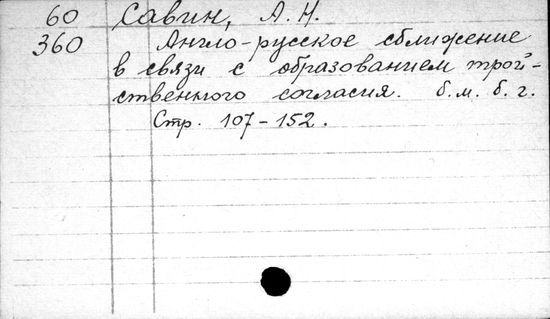 60 Савин, А. Н.
360 Англо-русское сближение
в связи с образованием трой-
ственного согласия. б.м. б.г.
Стр. 107-152.